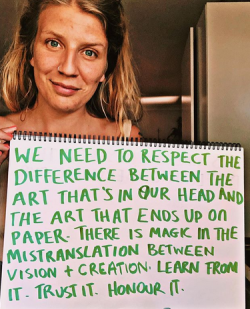 WE NEED TO RESPECT THE
DIFFERENCE BETWEEN THE
ART THAT'S IN OUR HEAD AND
THE ART THAT ENDS UP ON
PAPER. THERE IS MAGIC IN THE
MISTRANSLATION BETWEEN
VISION + CREATION. LEARN FROM
IT. TRUST IT. HONOUR IT.